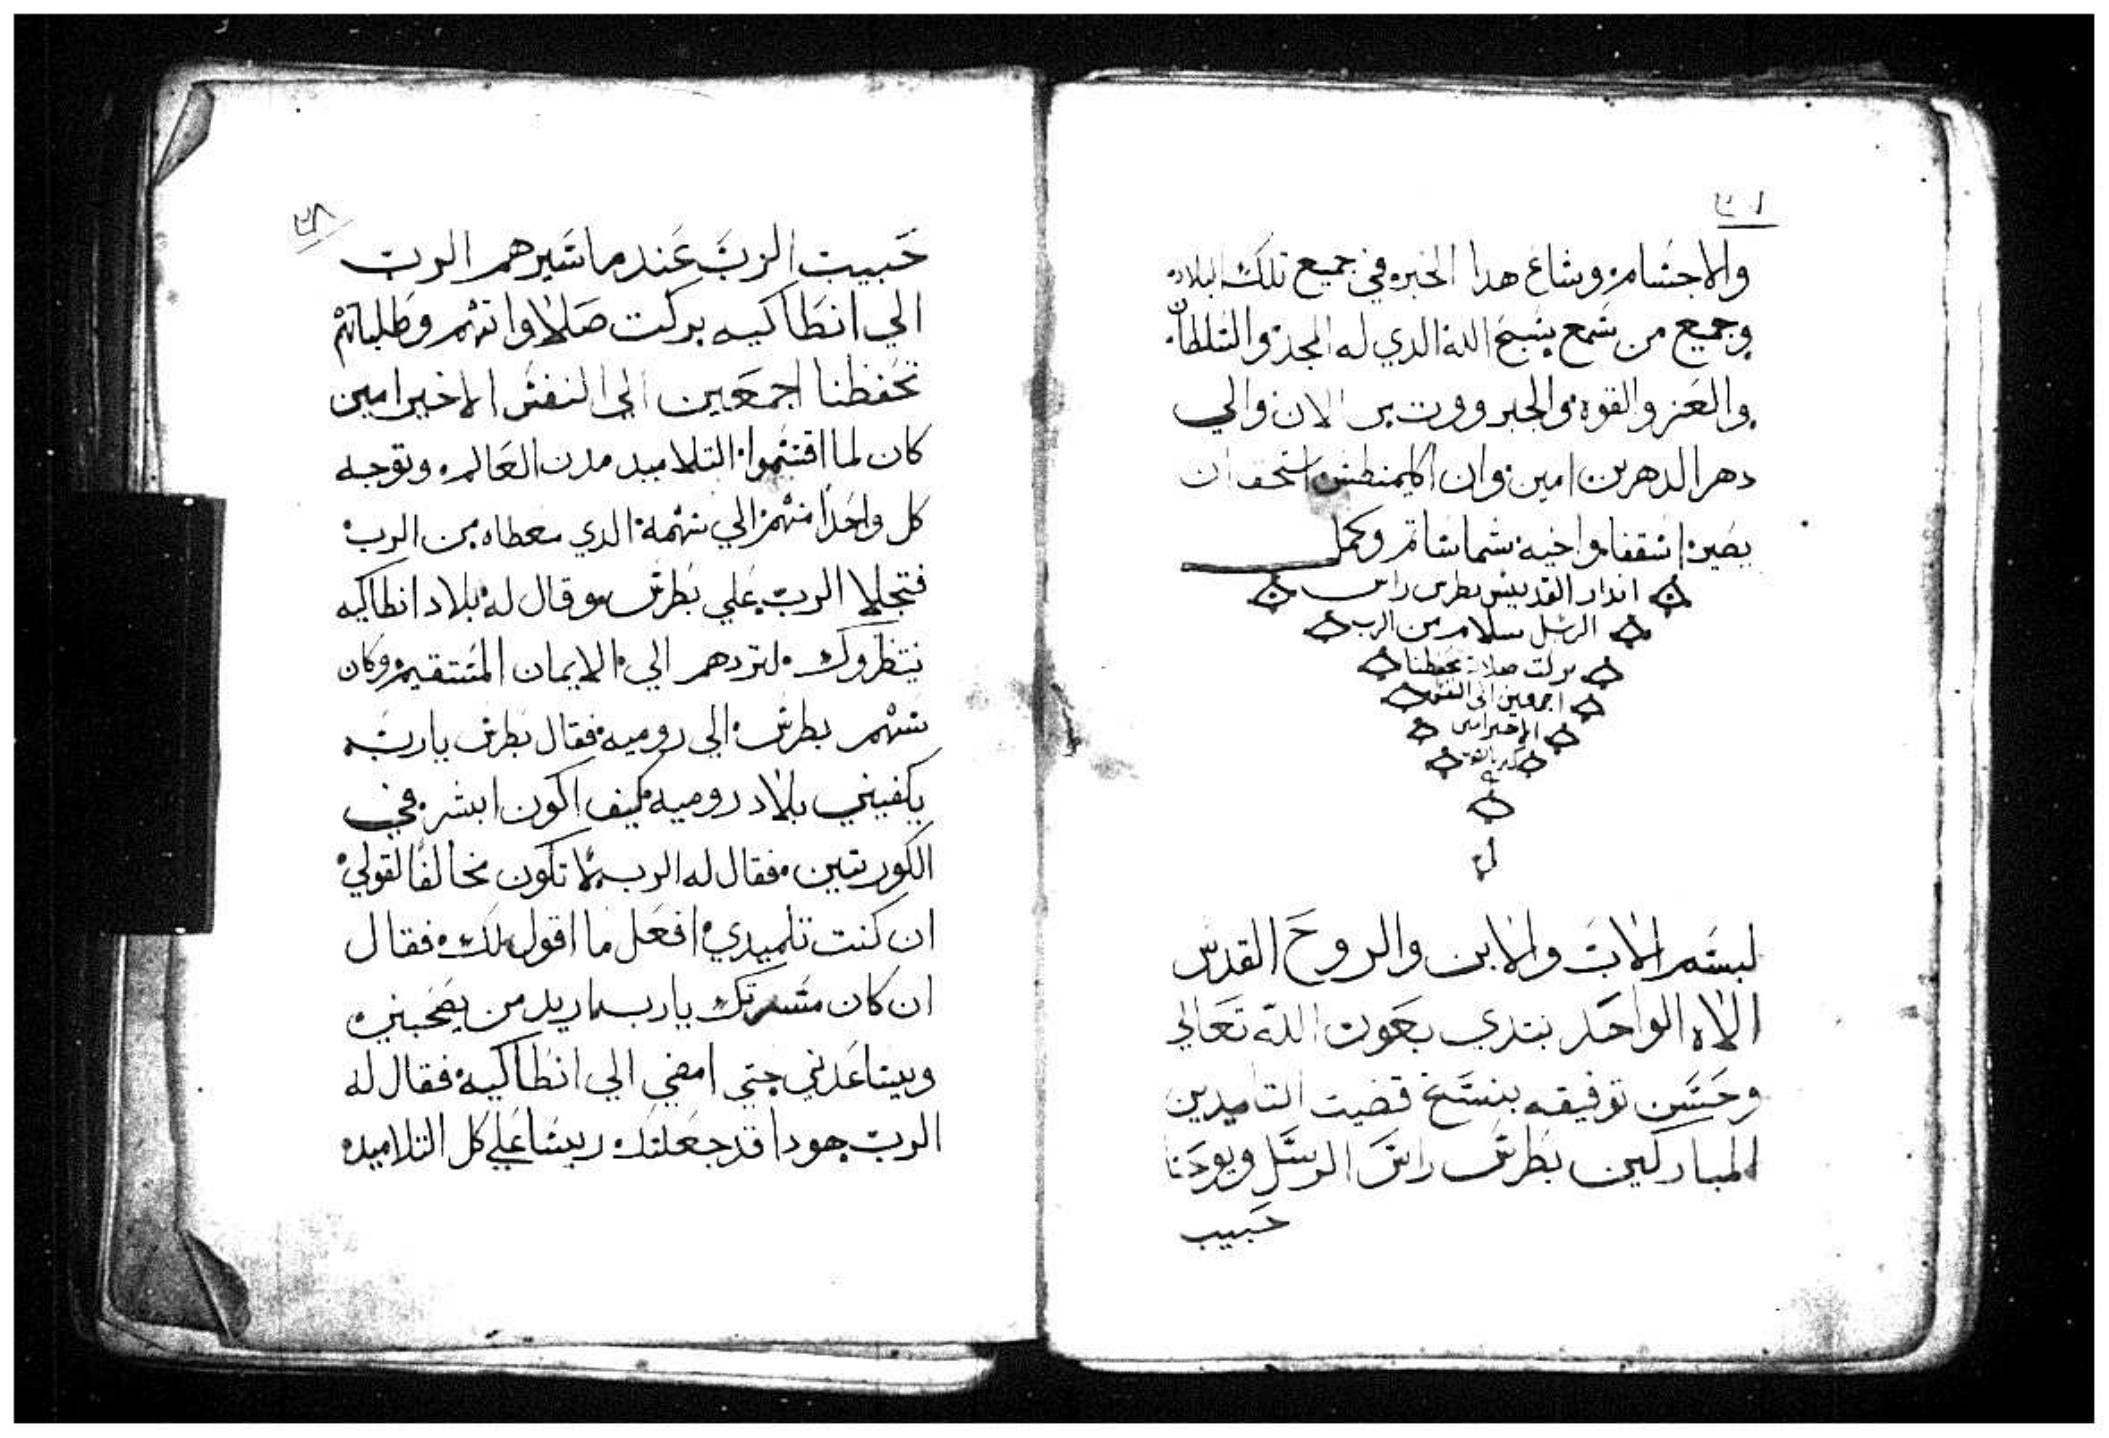 والاجسام وشاع هدا الخبر في جميع تلك البلاد
وجميع من سمع يسبح الله الدي له المجد والسلطان
والعز والقوه والجبرووت من الان والي
دهر الدهرين امين وان اكليمنطس استحق ان
يصير اسقفا واخيه شماسا تم وكمل
اندار القديس بطرس راس
الرسل بسلام من الرب
بركت صلاته تحفظنا
اجمعين الي النفس
الاخير امين
لبسم الاب والابن والروح القدس
الاه الواحد نبتدي بعون الله تعالي
وحسن توفيقه بنسخ قضيت التلميدين
المباركين بطرس راس الرسل ويوحنا
حبيب
٢٨
حبيبت الرب عند ما سيرهم الرب
الي انطاكيه بركت صلاواتهم وطلباتهم
تحفظنا اجمعين الي النفس الاخير امين
كان لما اقتسموا التلاميد مدن العالم وتوجه
كل واحدا منهم الي سهمه الدي معطاه من الرب
فتجلا الرب علي بطرس وقال له بلاد انطاكيه
نتظروك لتردهم الي الايمان المستقيم وكان
سهم بطرس الي روميه فقال بطرس يا رب
يكفيني بلاد روميه كيف اكون ابشر في
الكورتين فقال له الرب لا تكون مخالفا لقولي
ان كنت تلميدي افعل ما اقول لك فقال
ان كان مسرتك يا رب اريد من يصحبني
ويساعدني حتي امضي الي انطاكيه فقال له
الرب هودا قد جعلتك ريسا علي كل التلاميد